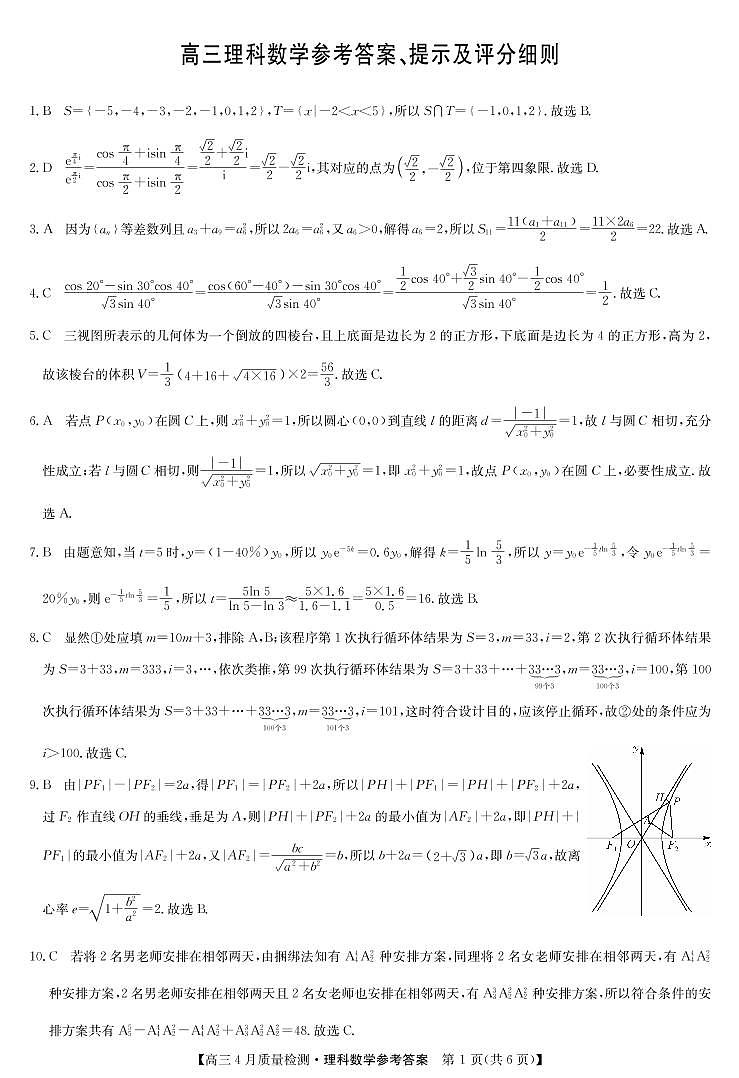 高三理科数学参考答案、提示及评分细则
1. B S={-5,-4,-3,-2,-1,0,1,2},T={x|-2<x<5},所以 S∩T={-1,0,1,2}. 故选 B.
2. D e^{π/4 i}/e^{π/2 i}=(cos π/4+isin π/4)/(cos π/2+isin π/2)=(√2/2+√2/2 i)/i=√2/2-√2/2 i,其对应的点为(√2/2,-√2/2),位于第四象限. 故选 D.
3. A 因为{aₙ}等差数列且 a₃+a₉=a₆²,所以 2a₆=a₆²,又 a₆>0,解得 a₆=2,所以 S₁₁=11(a₁+a₁₁)/2=11×2a₆/2=22. 故选 A.
4. C (cos 20°-sin 30°cos 40°)/(√3sin 40°)=(cos(60°-40°)-sin 30°cos 40°)/(√3sin 40°)=(1/2 cos 40°+√3/2 sin 40°-1/2 cos 40°)/(√3sin 40°)=1/2. 故选 C.
5. C 三视图所表示的几何体为一个倒放的四棱台,且上底面是边长为 2 的正方形,下底面是边长为 4 的正方形,高为 2,
故该棱台的体积 V=1/3(4+16+√(4×16))×2=56/3. 故选 C.
6. A 若点 P(x₀,y₀)在圆 C 上,则 x₀²+y₀²=1,所以圆心(0,0)到直线 l 的距离 d=|-1|/√(x₀²+y₀²)=1,故 l 与圆 C 相切,充分
性成立;若 l 与圆 C 相切,则|-1|/√(x₀²+y₀²)=1,所以√(x₀²+y₀²)=1,即 x₀²+y₀²=1,故点 P(x₀,y₀)在圆 C 上,必要性成立. 故
选 A.
7. B 由题意知,当 t=5 时,y=(1-40%)y₀,所以 y₀e^{-5k}=0.6y₀,解得 k=1/5 ln 5/3,所以 y=y₀e^{-1/5 tln 5/3},令 y₀e^{-1/5 tln 5/3}=
20%y₀,则 e^{-1/5 tln 5/3}=1/5,所以 t=5ln 5/(ln 5-ln 3)≈5×1.6/(1.6-1.1)=5×1.6/0.5=16. 故选 B.
8. C 显然①处应填 m=10m+3,排除 A,B;该程序第 1 次执行循环体结果为 S=3,m=33,i=2,第 2 次执行循环体结果
为 S=3+33,m=333,i=3,…,依次类推,第 99 次执行循环体结果为 S=3+33+…+33…3,m=33…3,i=100,第 100
99个3 100个3
次执行循环体结果为 S=3+33+…+33…3,m=33…3,i=101,这时符合设计目的,应该停止循环,故②处的条件应为
100个3 101个3
i>100. 故选 C.
9. B 由|PF₁|-|PF₂|=2a,得|PF₁|=|PF₂|+2a,所以|PH|+|PF₁|=|PH|+|PF₂|+2a,
过 F₂ 作直线 OH 的垂线,垂足为 A,则|PH|+|PF₂|+2a 的最小值为|AF₂|+2a,即|PH|+|
PF₁|的最小值为|AF₂|+2a,又|AF₂|=bc/√(a²+b²)=b,所以 b+2a=(2+√3)a,即 b=√3a,故离
心率 e=√(1+b²/a²)=2. 故选 B.
y
H P
A
F₁ O F₂ x
10. C 若将 2 名男老师安排在相邻两天,由捆绑法知有 A₄⁴A₂² 种安排方案,同理将 2 名女老师安排在相邻两天,有 A₄⁴A₂²
种安排方案,2 名男老师安排在相邻两天且 2 名女老师也安排在相邻两天,有 A₃³A₂²A₂² 种安排方案,所以符合条件的安
排方案共有 A₅⁵-A₄⁴A₂²-A₄⁴A₂²+A₃³A₂²A₂²=48. 故选 C.
【高三 4 月质量检测·理科数学参考答案 第 1 页(共 6 页)】